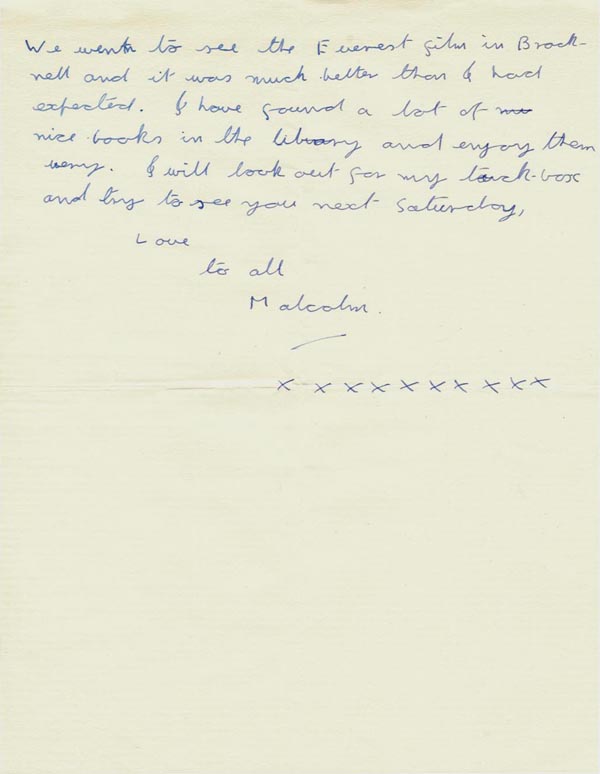 We went to see the Everest film in Brack-
nell and it was much better than I had
expected. I have found a lot of
nice books in the library and enjoy them
very. I will look out for my tuck-box
and try to see you next Saturday,
Love
to all
Malcolm.
x x x x x x x x x x